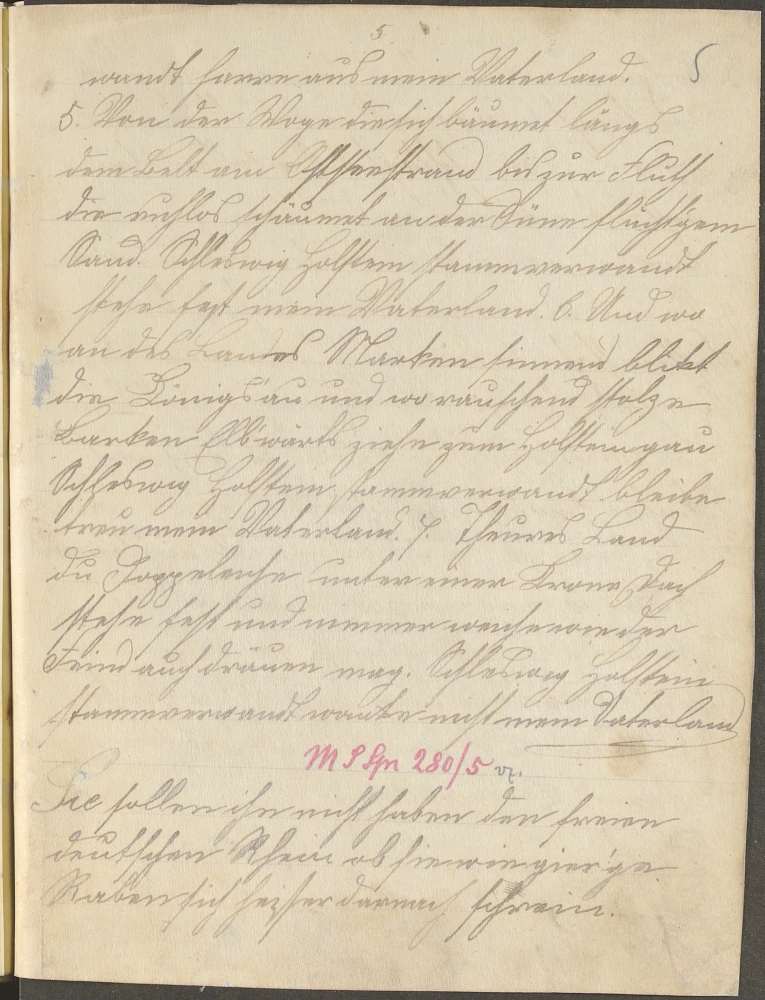 5.
5
wandt harre aus mein Vaterland.
5. Von der Woge die sich bäumet längs
dem Belt am Ostseestrand bis zur Fluth
die ruhlos schäumet an der Düne flüchtgem
Sand. Schleswig Holstein stammverwandt
stehe fest mein Vaterland. 6. Und wo
an des Landes Marken sinnend blikt
die Königsau und wo rauschend stolze
Barken Elbwärts ziehn zum Holstengau
Schleswig Holstein stammverwandt bleibe
treu mein Vaterland. 7. Theures Land
du Doppeleiche unter einer Krone Dach
stehe fest und nimmer weiche wie der
Feind auch dräuen mag. Schleswig Holstein
stammverwandt wanke nicht mein Vaterland
280/5
Sie sollen ihn nicht haben den freien
deutschen Rhein ob sie wie gier'ge
Raben sich heiser darnach schrein.